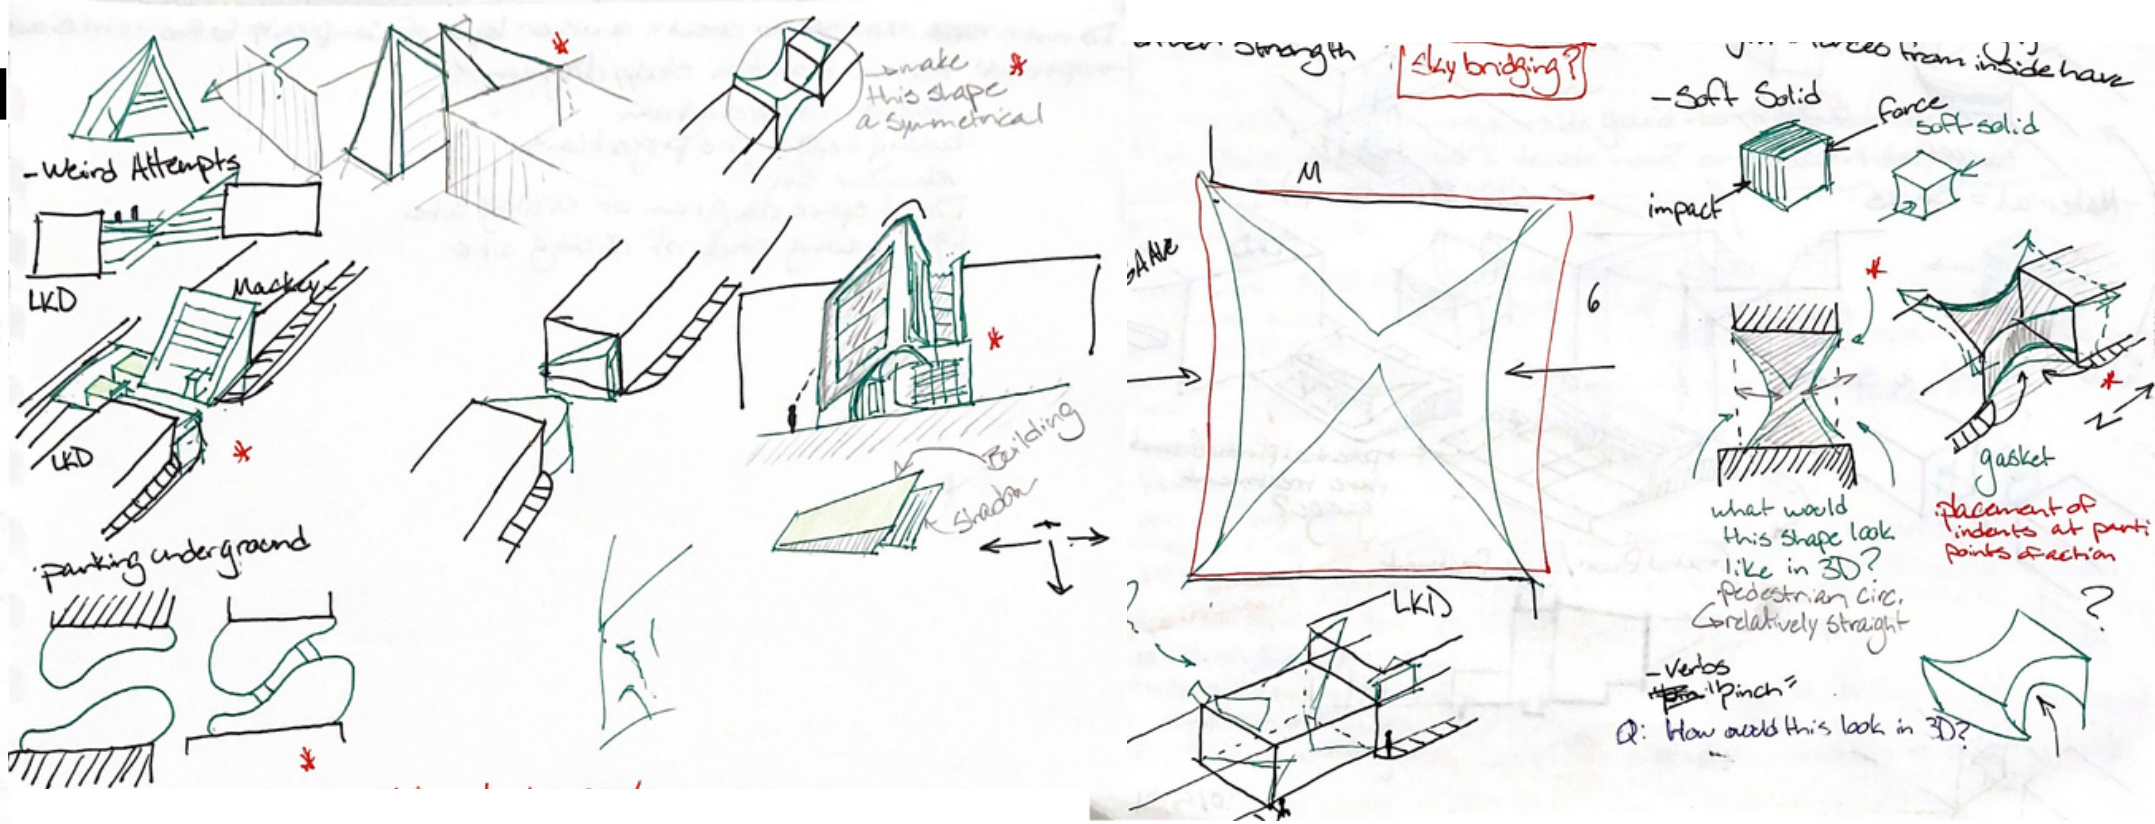 make
this shape
a symmetrical
- Weird Attempts
LKD
Mackey
LKD
Building
Shadow
parking underground
Strength
sky bridging?
forces from inside have
- Soft Solid
force
soft solid
impact
M
6
LKD
gasket
what would
this shape look
like in 3D?
pedestrian circ.
relatively straight
placement of
indents at parti
points of action
?
- Verbs
"pinch"
Q: How would this look in 3D?
?